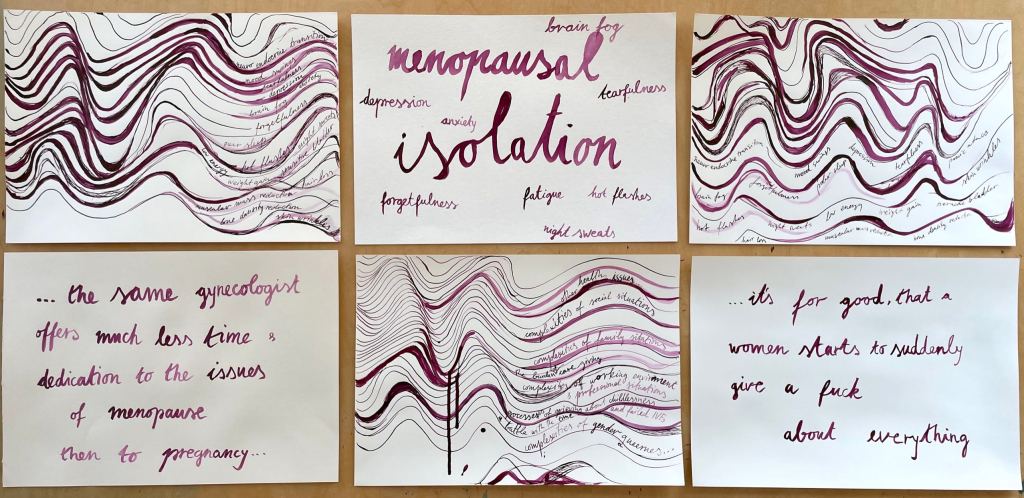 neuro endocrine transition
mood swings
tearfulness
depression
brain fog
forgetfulness
poor sleep
low energy
hot flashes
night sweats
weight gain
sensitive bladder
muscular mass reduction
hair loss
bone density reduction
skin wrinkles
brain fog
menopausal
depression
tearfulness
anxiety
isolation
forgetfulness
fatigue
hot flashes
night sweats
neuro endocrine transition
mood swings
depression
tearfulness
skin wrinkles
brain fog
forgetfulness
poor sleep
hot flashes
night sweats
low energy
weight gain
hair loss
bone density reduction
... the same gynecologist
offers much less time &
dedication to the issues
of menopause
then to pregnancy...
other health issues
complexities of social situations
complexities of family relations
complexities of working environment
& professional situations
processes of grieving about childlessness
and failed IVF
a battle with the time
complexities of gender queerness...
...it's for good, that a
women starts to suddenly
give a fuck
about everything